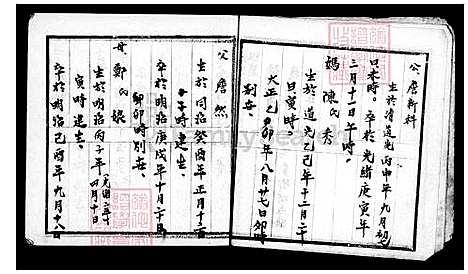 公詹新科
生於清道光丙申年九月初七
日未時。卒於光緒庚寅年
三月十一日午時。
媽陳氏秀
生於道光乙己年十二月二十
日寅時。
大正乙卯年八月廿七日卯時
別世。
公詹然
生於同治癸酉年正月十三
子時建生。
卒於明治庚戌年十月二十
卯時別世。
母鄭氏
生於明治丙子年四月十日
寅時建生。
卒於明治己酉年九月十八